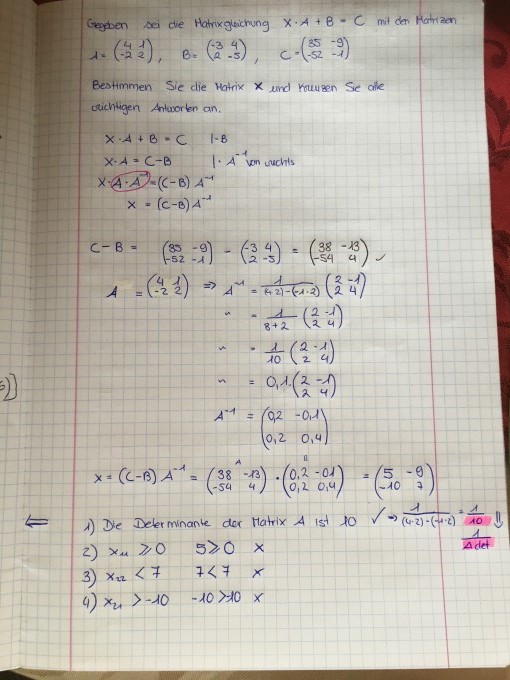 Gegeben sei die Matrixgleichung X·A + B = C mit den Matrizen
A = (4 1 / -2 2), B = (-3 4 / 2 -5), C = (35 -9 / -52 -1)
Bestimmen Sie die Matrix X und kreuzen Sie alle
richtigen Antworten an.
X·A + B = C |-B
X·A = C-B |·A⁻¹ von rechts
X·A·A⁻¹ = (C-B) A⁻¹
X = (C-B) A⁻¹
C-B = (35 -9 / -52 -1) - (-3 4 / 2 -5) = (38 -13 / -54 4) ✓
A = (4 1 / -2 2) ⇒ A⁻¹ = 1/((4·2)-(-1·2)) (2 -1 / 2 4)
" = 1/(8+2) (2 -1 / 2 4)
" = 1/10 (2 -1 / 2 4)
" = 0,1·(2 -1 / 2 4)
5))
A⁻¹ = (0,2 -0,1 / 0,2 0,4)
A B
X = (C-B) A⁻¹ = (38 -13 / -54 4) · (0,2 -0,1 / 0,2 0,4) = (5 -9 / -10 7)
⇐ 1) Die Determinante der Matrix A ist 10 ✓ → 1/((4·2)-(-1·2)) = 1/10 ⇓
1/A det
2) x₁₁ ⩾ 0 5 ⩾ 0 x
3) x₂₂ < 7 7 < 7 x
4) x₂₁ > -10 -10 > -10 x